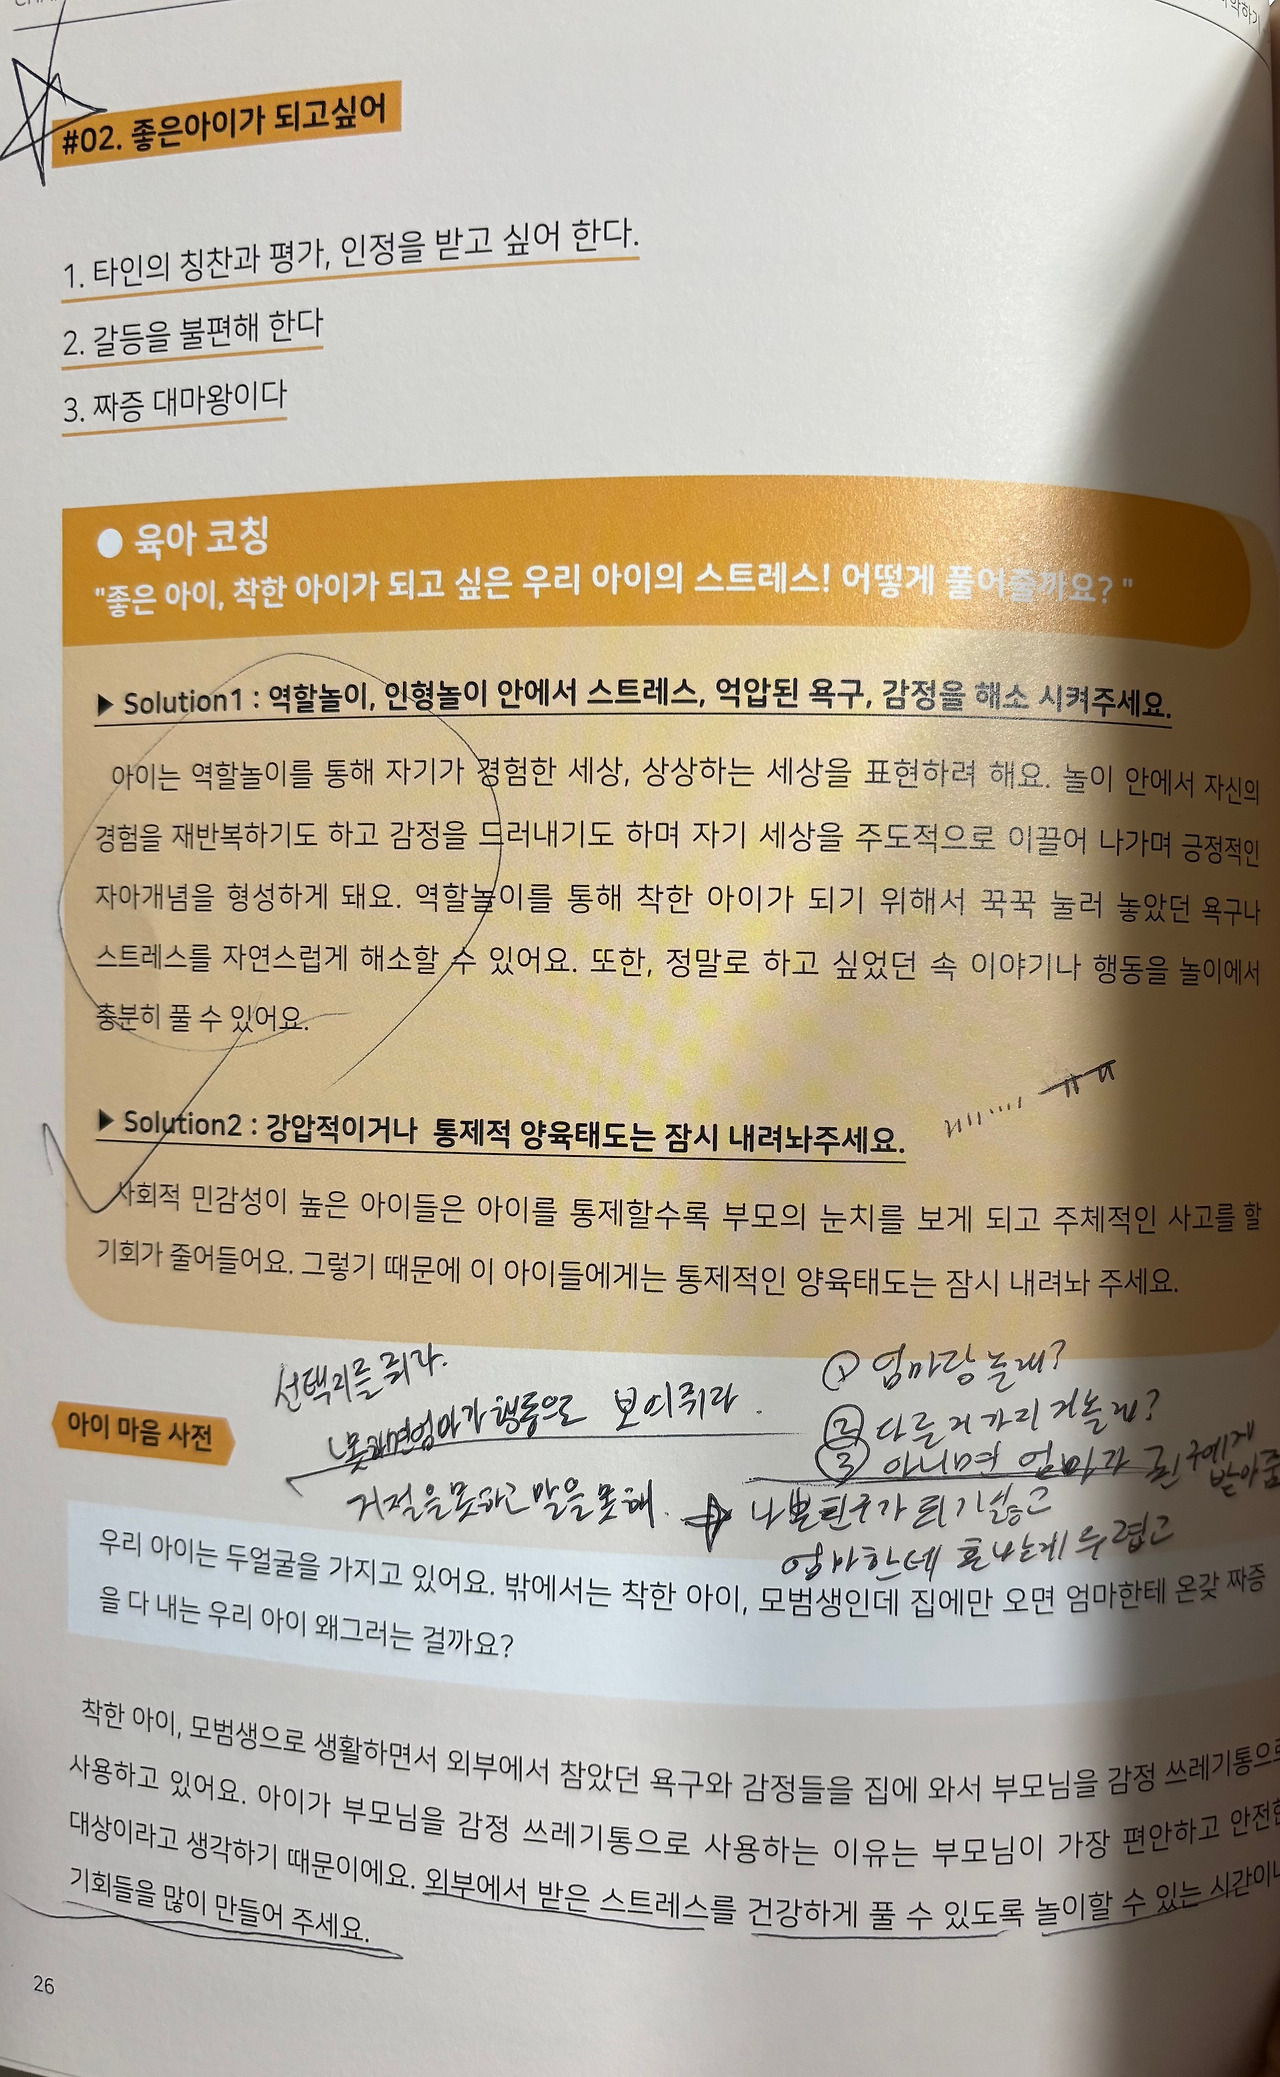 #02. 좋은아이가 되고싶어
1. 타인의 칭찬과 평가, 인정을 받고 싶어 한다.
2. 갈등을 불편해 한다
3. 짜증 대마왕이다
● 육아 코칭
"좋은 아이, 착한 아이가 되고 싶은 우리 아이의 스트레스! 어떻게 풀어줄까요?"
▶ Solution1 : 역할놀이, 인형놀이 안에서 스트레스, 억압된 욕구, 감정을 해소 시켜주세요.
아이는 역할놀이를 통해 자기가 경험한 세상, 상상하는 세상을 표현하려 해요. 놀이 안에서 자신의
경험을 재반복하기도 하고 감정을 드러내기도 하며 자기 세상을 주도적으로 이끌어 나가며 긍정적인
자아개념을 형성하게 돼요. 역할놀이를 통해 착한 아이가 되기 위해서 꾹꾹 눌러 놓았던 욕구나
스트레스를 자연스럽게 해소할 수 있어요. 또한, 정말로 하고 싶었던 속 이야기나 행동을 놀이에서
충분히 풀 수 있어요.
▶ Solution2 : 강압적이거나 통제적 양육태도는 잠시 내려놔주세요.
사회적 민감성이 높은 아이들은 아이를 통제할수록 부모의 눈치를 보게 되고 주체적인 사고를 할
기회가 줄어들어요. 그렇기 때문에 이 아이들에게는 통제적인 양육태도는 잠시 내려놔 주세요.
선택지를 줘라.
못하면 엄마가 행동으로 보여줘라.
거절을 못하고 말을 못해.
① 엄마랑 놀래?
② 다른거 가지거 놀래?
③ 아니면 엄마가 친구에게
받아줄
→ 나쁜친구가 되기싫고
엄마한테 혼나는게 두렵고
아이 마음 사전
우리 아이는 두얼굴을 가지고 있어요. 밖에서는 착한 아이, 모범생인데 집에만 오면 엄마한테 온갖 짜증
을 다 내는 우리 아이 왜그러는 걸까요?
착한 아이, 모범생으로 생활하면서 외부에서 참았던 욕구와 감정들을 집에 와서 부모님을 감정 쓰레기통으로
사용하고 있어요. 아이가 부모님을 감정 쓰레기통으로 사용하는 이유는 부모님이 가장 편안하고 안전한
대상이라고 생각하기 때문이에요. 외부에서 받은 스트레스를 건강하게 풀 수 있도록 놀이할 수 있는 시간이나
기회들을 많이 만들어 주세요.
26